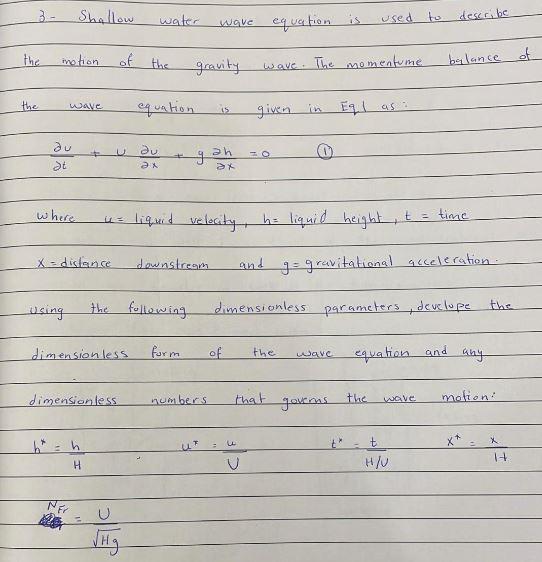 3- Shallow water wave equation is used to describe
the motion of the gravity wave. The momentume balance of
the wave equation is given in Eq1 as:
∂u/∂t + u ∂u/∂x + g ∂h/∂x = 0 ①
where u= liquid velocity, h= liquid height, t = time
x = distance downstream and g= gravitational acceleration.
using the following dimensionless parameters, develope the
dimensionless form of the wave equation and any
dimensionless numbers that governs the wave motion:
h* = h/H u* = u/U t* = t/(H/U) x* = x/H
N_Fr = U/√Hg